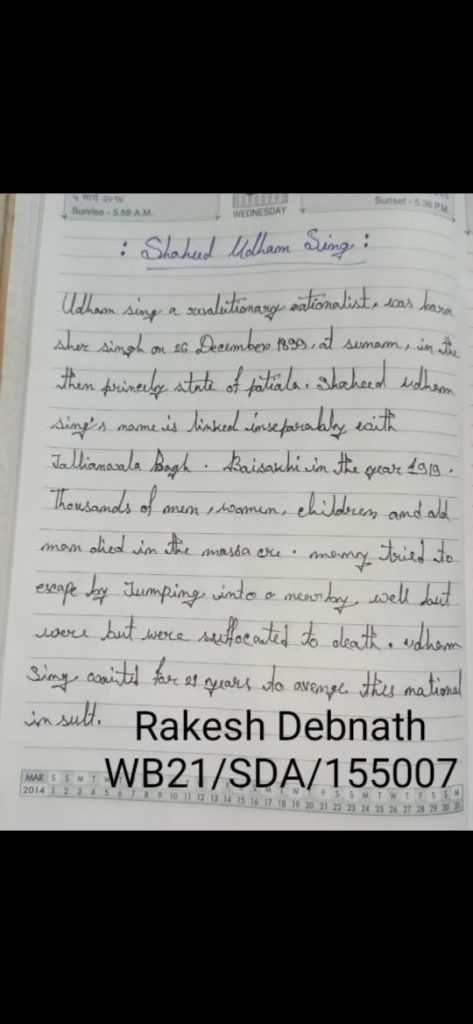 ५ मार्च २०१४
Sunrise - 5.59 A.M.
WEDNESDAY
Sunset - 5.36 P.M.
: Shaheed Udham Sing :
Udham sing a revolutionary nationalist, was born
sher singh on 26 December 1899, at sunam, in the
then princely state of patiala. Shaheed udham
sing's name is linked inseparably with
Jallianwala Bagh. Baisakhi in the year 1919.
Thousands of men, women, children and old
man died in the massacre. many tried to
escape by Jumping into a nearby, well but
were but were suffocated to death. udham
Sing waited for 21 years to avenge this national
insult.
Rakesh Debnath
WB21/SDA/155007
MAR S S M T W T F S S M T W T F S S M T W T F S S M T W T F S S M
2014 1 2 3 4 5 6 7 8 9 10 11 12 13 14 15 16 17 18 19 20 21 22 23 24 25 26 27 28 29 30 31